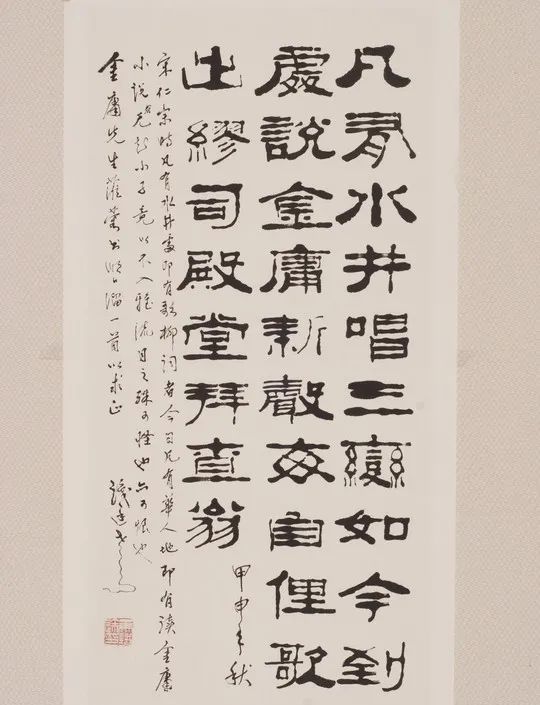 凡有水井唱三變如今到
處說金庸新聲每自俚歌
出繆司殿堂拜查翁
甲申年秋
宋仁宗時凡有水井處即有歌柳詞者今日凡有華人地即有讀金庸
小說者 小子竟以不入雅流目之殊可怪也亦可恨也
金庸先生 書順口溜一首以求正